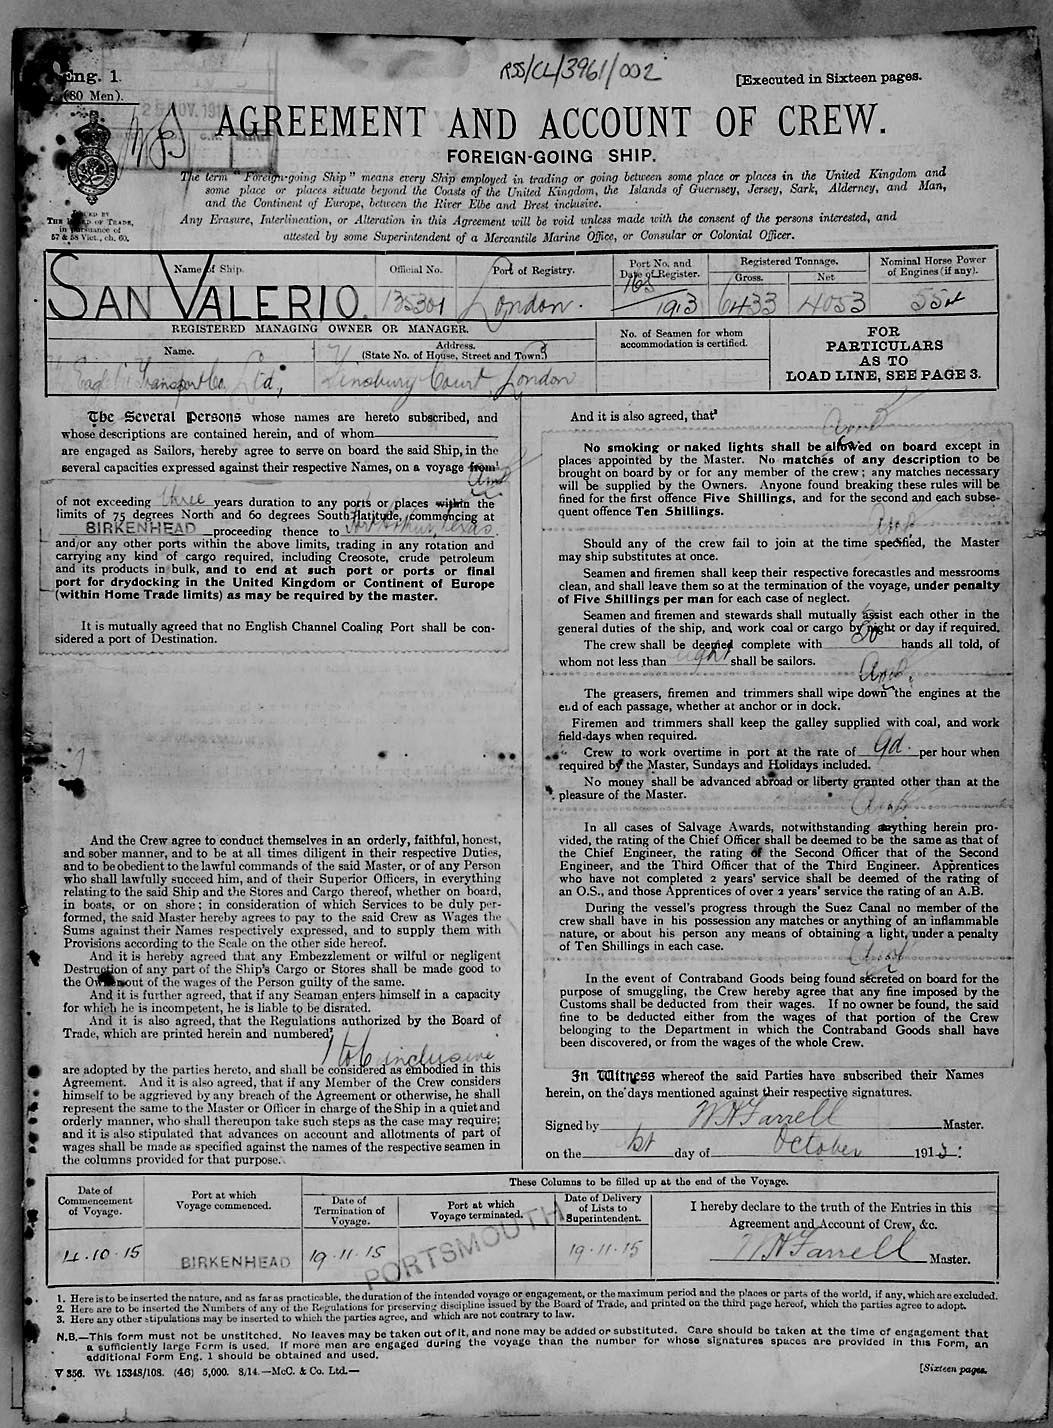 Eng. 1.
(80 Men).
RSS/CL/3961/002
[Executed in Sixteen pages.
NOV. 191
AGREEMENT AND ACCOUNT OF CREW.
FOREIGN-GOING SHIP.
The term "Foreign-going Ship" means every Ship employed in trading or going between some place or places in the United Kingdom and
some place or places situate beyond the Coasts of the United Kingdom, the Islands of Guernsey, Jersey, Sark, Alderney, and Man,
and the Continent of Europe, between the River Elbe and Brest inclusive.
Any Erasure, Interlineation, or Alteration in this Agreement will be void unless made with the consent of the persons interested, and
attested by some Superintendent of a Mercantile Marine Office, or Consular or Colonial Officer.
ISSUED BY
THE BOARD OF TRADE,
in pursuance of
57 & 58 Vict., ch. 60.
Name of Ship.
Official No.
Port of Registry.
Port No. and
Date of Register.
Registered Tonnage.
Gross.
Net
Nominal Horse Power
of Engines (if any).
SAN VALERIO.
135301
London.
165
1913
6433
4053
REGISTERED MANAGING OWNER OR MANAGER.
Name.
Address.
(State No. of House, Street and Town.)
No. of Seamen for whom
accommodation is certified.
FOR
PARTICULARS
AS TO
LOAD LINE, SEE PAGE 3.
Eagle Oil Transport Co. Ltd,
Finsbury Court, London
The Several Persons whose names are hereto subscribed, and
whose descriptions are contained herein, and of whom
are engaged as Sailors, hereby agree to serve on board the said Ship, in the
several capacities expressed against their respective Names, on a voyage from¹
of not exceeding three years duration to any ports or places within the
limits of 75 degrees North and 60 degrees South latitude, commencing at
BIRKENHEAD proceeding thence to Port Arthur, Texas
and/or any other ports within the above limits, trading in any rotation and
carrying any kind of cargo required, including Creosote, crude petroleum
and its products in bulk, and to end at such port or ports or final
port for drydocking in the United Kingdom or Continent of Europe
(within Home Trade limits) as may be required by the master.
It is mutually agreed that no English Channel Coaling Port shall be con-
sidered a port of Destination.
And the Crew agree to conduct themselves in an orderly, faithful, honest,
and sober manner, and to be at all times diligent in their respective Duties,
and to be obedient to the lawful commands of the said Master, or of any Person
who shall lawfully succeed him, and of their Superior Officers, in everything
relating to the said Ship and the Stores and Cargo thereof, whether on board,
in boats, or on shore; in consideration of which Services to be duly per-
formed, the said Master hereby agrees to pay to the said Crew as Wages the
Sums against their Names respectively expressed, and to supply them with
Provisions according to the Scale on the other side hereof.
And it is hereby agreed that any Embezzlement or wilful or negligent
Destruction of any part of the Ship's Cargo or Stores shall be made good to
the Owner out of the wages of the Person guilty of the same.
And it is further agreed, that if any Seaman enters himself in a capacity
for which he is incompetent, he is liable to be disrated.
And it is also agreed, that the Regulations authorized by the Board of
Trade, which are printed herein and numbered²
1 to 6 inclusive
are adopted by the parties hereto, and shall be considered as embodied in this
Agreement. And it is also agreed, that if any Member of the Crew considers
himself to be aggrieved by any breach of the Agreement or otherwise, he shall
represent the same to the Master or Officer in charge of the Ship in a quiet and
orderly manner, who shall thereupon take such steps as the case may require;
and it is also stipulated that advances on account and allotments of part of
wages shall be made as specified against the names of the respective seamen in
the columns provided for that purpose.
And it is also agreed, that³
No smoking or naked lights shall be allowed on board except in
places appointed by the Master. No matches of any description to be
brought on board by or for any member of the crew; any matches necessary
will be supplied by the Owners. Anyone found breaking these rules will be
fined for the first offence Five Shillings, and for the second and each subse-
quent offence Ten Shillings.
Should any of the crew fail to join at the time specified, the Master
may ship substitutes at once.
Seamen and firemen shall keep their respective forecastles and messrooms
clean, and shall leave them so at the termination of the voyage, under penalty
of Five Shillings per man for each case of neglect.
Seamen and firemen and stewards shall mutually assist each other in the
general duties of the ship, and work coal or cargo by night or day if required.
The crew shall be deemed complete with 50 hands all told, of
whom not less than eight shall be sailors.
The greasers, firemen and trimmers shall wipe down the engines at the
end of each passage, whether at anchor or in dock.
Firemen and trimmers shall keep the galley supplied with coal, and work
field-days when required.
Crew to work overtime in port at the rate of 9d. per hour when
required by the Master, Sundays and Holidays included.
No money shall be advanced abroad or liberty granted other than at the
pleasure of the Master.
In all cases of Salvage Awards, notwithstanding anything herein pro-
vided, the rating of the Chief Officer shall be deemed to be the same as that of
the Chief Engineer, the rating of the Second Officer that of the Second
Engineer, and the Third Officer that of the Third Engineer. Apprentices
who have not completed 2 years' service shall be deemed of the rating of
an O.S., and those Apprentices of over 2 years' service the rating of an A.B.
During the vessel's progress through the Suez Canal no member of the
crew shall have in his possession any matches or anything of an inflammable
nature, or about his person any means of obtaining a light, under a penalty
of Ten Shillings in each case.
In the event of Contraband Goods being found secreted on board for the
purpose of smuggling, the Crew hereby agree that any fine imposed by the
Customs shall be deducted from their wages. If no owner be found, the said
fine to be deducted either from the wages of that portion of the Crew
belonging to the Department in which the Contraband Goods shall have
been discovered, or from the wages of the whole Crew.
In Witness whereof the said Parties have subscribed their Names
herein, on the days mentioned against their respective signatures.
Signed by W H Farrell Master.
on the 1st day of October 1915.
These Columns to be filled up at the end of the Voyage.
Date of
Commencement
of Voyage.
Port at which
Voyage commenced.
Date of
Termination of
Voyage.
Port at which
Voyage terminated.
Date of Delivery
of Lists to
Superintendent.
I hereby declare to the truth of the Entries in this
Agreement and Account of Crew, &c.
4.10.15
BIRKENHEAD
19.11.15
PORTSMOUTH
19.11.15
W H Farrell Master.
1. Here is to be inserted the nature, and as far as practicable, the duration of the intended voyage or engagement, or the maximum period and the places or parts of the world, if any, which are excluded.
2. Here are to be inserted the Numbers of any of the Regulations for preserving discipline issued by the Board of Trade, and printed on the third page hereof, which the parties agree to adopt.
3. Here any other stipulations may be inserted to which the parties agree, and which are not contrary to law.
N.B.—This form must not be unstitched. No leaves may be taken out of it, and none may be added or substituted. Care should be taken at the time of engagement that
a sufficiently large Form is used. If more men are engaged during the voyage than the number for whose signatures spaces are provided in this Form, an
additional Form Eng. 1 should be obtained and used.
V 356. Wt. 15348/108. (46) 5,000. 8/14.—McC. & Co. Ltd.—
[Sixteen pages.